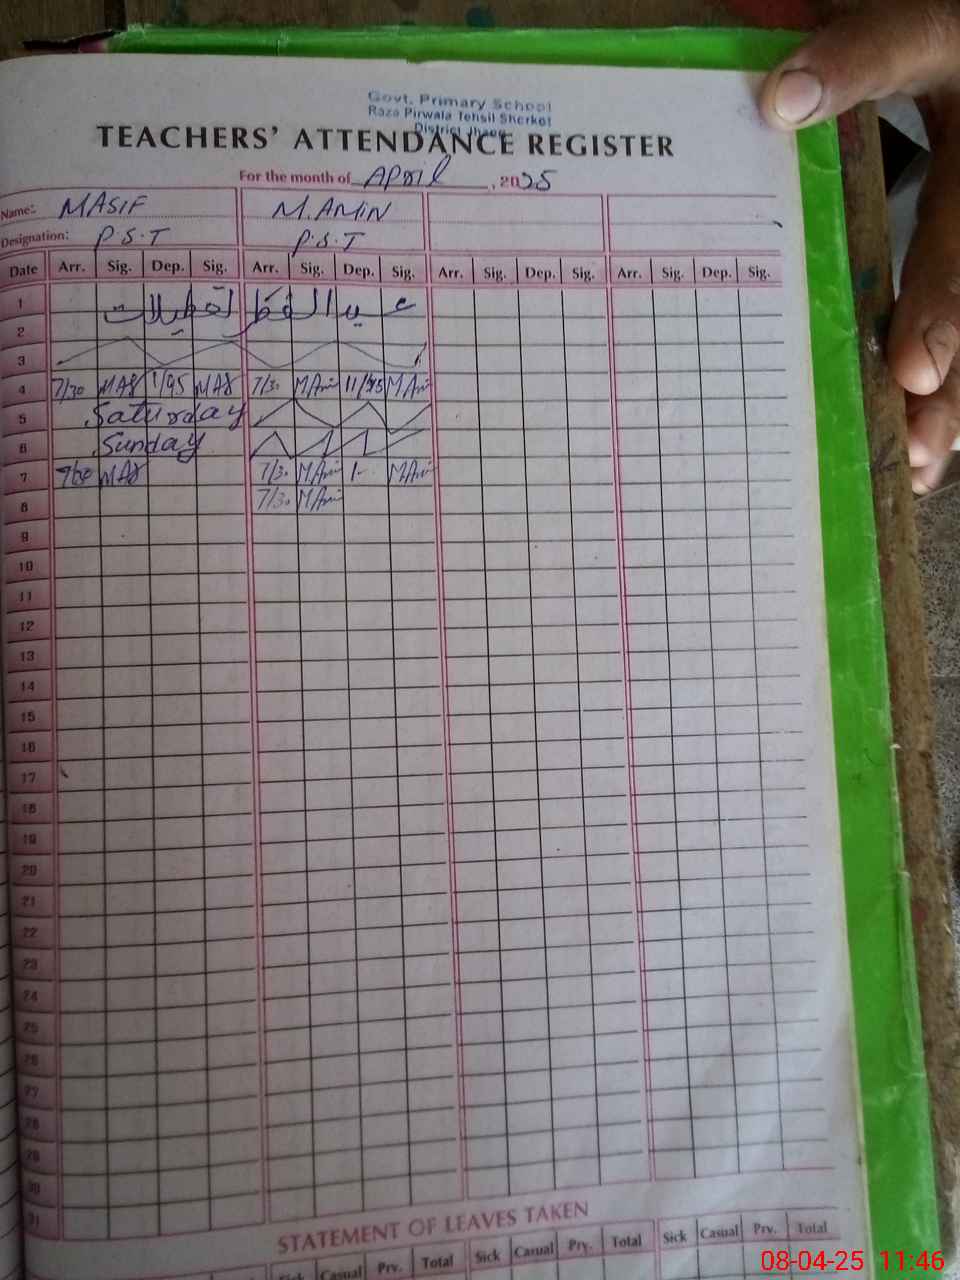 Govt. Primary School
Raza Pirwala Tehsil Sherkot
District Jhang
TEACHERS' ATTENDANCE REGISTER
For the month of April , 2025
Name: MASIF M.AMIN
Designation: P.S.T P.S.T
Date Arr. Sig. Dep. Sig. Arr. Sig. Dep. Sig. Arr. Sig. Dep. Sig. Arr. Sig. Dep. Sig.
1 عید الفطر تعطیلات
2
3
4 7/30 MAS 7/30 MAmin MAmin
5 Saturday
6 Sunday
7 MAS 7/30 MAmin MAmin
8 7/30 MAmin
9
10
11
12
13
14
15
16
17
18
19
20
21
22
23
24
25
26
27
28
29
30
31
STATEMENT OF LEAVES TAKEN
Sick Casual Prv. Total Sick Casual Prv. Total Sick Casual Prv. Total
08-04-25 11:46